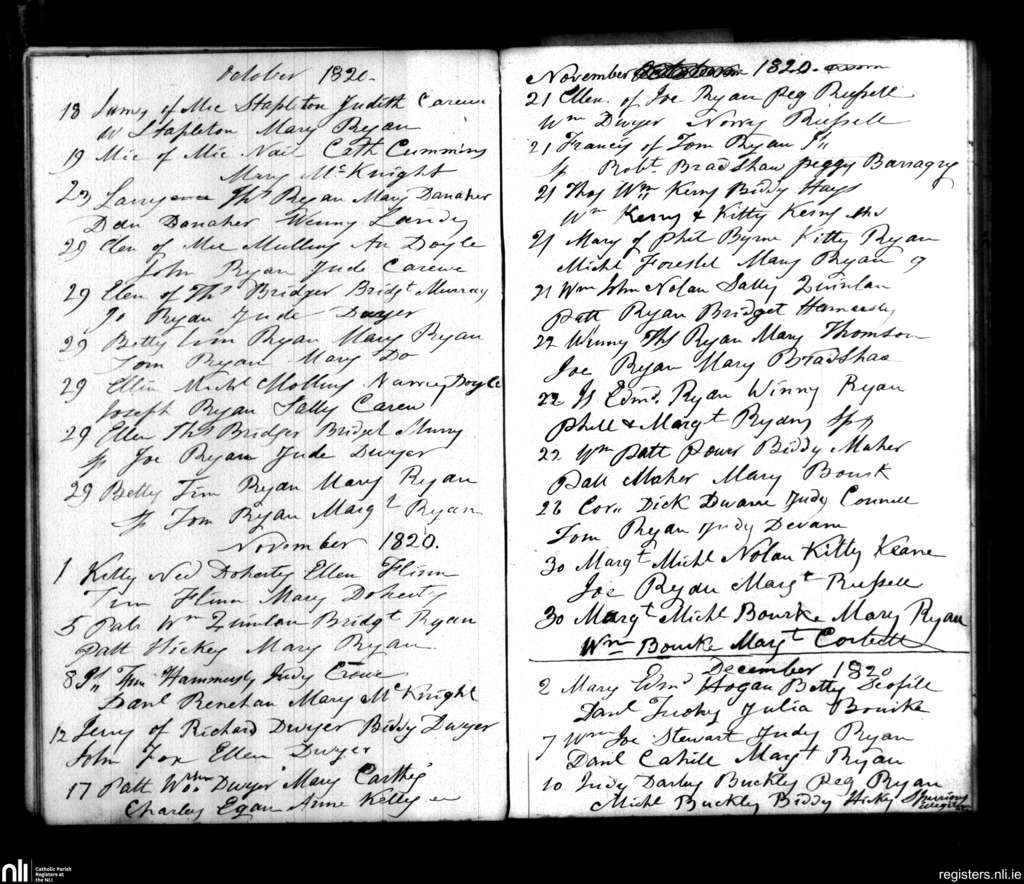 October 1820.
18 James of Mic Stapleton Judith Carew
W Stapleton Mary Ryan
19 Mic of Mic Nail Cath Cummins
Mary McKnight
23 Larry Ths Ryan Mary Danaher
Dan Danaher Wenny Landy
29 Elen of Mic Mullins An Doyle
John Ryan Jude Carew
29 Elen of Ths Bridger Bridgt Murray
Jo Ryan Jude Dwyer
29 Betty Tim Ryan Mary Ryan
Tom Ryan Mary Do
29 Ellin Michl Mollins Doyle
Joseph Ryan Sally Carew
29 Ellen Ths Bridger Bridget Murry
Sp Joe Ryan Jude Dwyer
29 Betty Tim Ryan Mary Ryan
Sp Tom Ryan Margt Ryan
November 1820.
1 Kitty Ned Doherty Ellen Flinn
Tim Flinn Mary Doherty
5 Patt Wm Quinlan Bridgt Ryan
Patt Hickey Mary Ryan
8 Tim Hammersly Judy Crowe
Danl Renehan Mary McKnight
12 Jerry of Richard Dwyer Biddy Dwyer
John Fox Ellen Dwyer
17 Patt Wm Dwyer Mary Carthy
Charley Egan Anne Kelly
November 1820.
21 Ellen of Joe Ryan Peg Russell
Wm Dwyer Norry Russell
21 Francis of Tom Ryan
Sp Robt Bradshaw peggy Barragry
21 Thos Wm Kerry Biddy Hays
Wm Kerry & Kitty Kerry
21 Mary of Phil Byrne Kitty Ryan
Michl Forestel Mary Ryan
21 Wm John Nolan Sally Quinlan
Patt Ryan Bridget Hennessy
22 Winny Ths Ryan Mary Thomson
Joe Ryan Mary Bradshaw
22 Js Edmd Ryan Winny Ryan
Phill & Margt Ryans Sps
22 Wm Patt Power Biddy Maher
Patt Maher Mary Bourk
26 Cors Dick Dwane Judy Connell
Tom Ryan Judy Devane
30 Margt Michl Nolan Kitty Keane
Joe Ryan Margt Russell
30 Margt Michl Bourke Mary Ryan
Wm Bourke Margt Corbett
December 1820
2 Mary Edmd Hogan Betty
Danl Tuohy Julia Bourke
7 Wm Joe Stewart Judy Ryan
Danl Cahill Margt Ryan
10 Judy Darley Buckley Peg Ryan
Michl Buckley Biddy Hicky
nli
Catholic Parish
Registers at
the NLI
registers.nli.ie